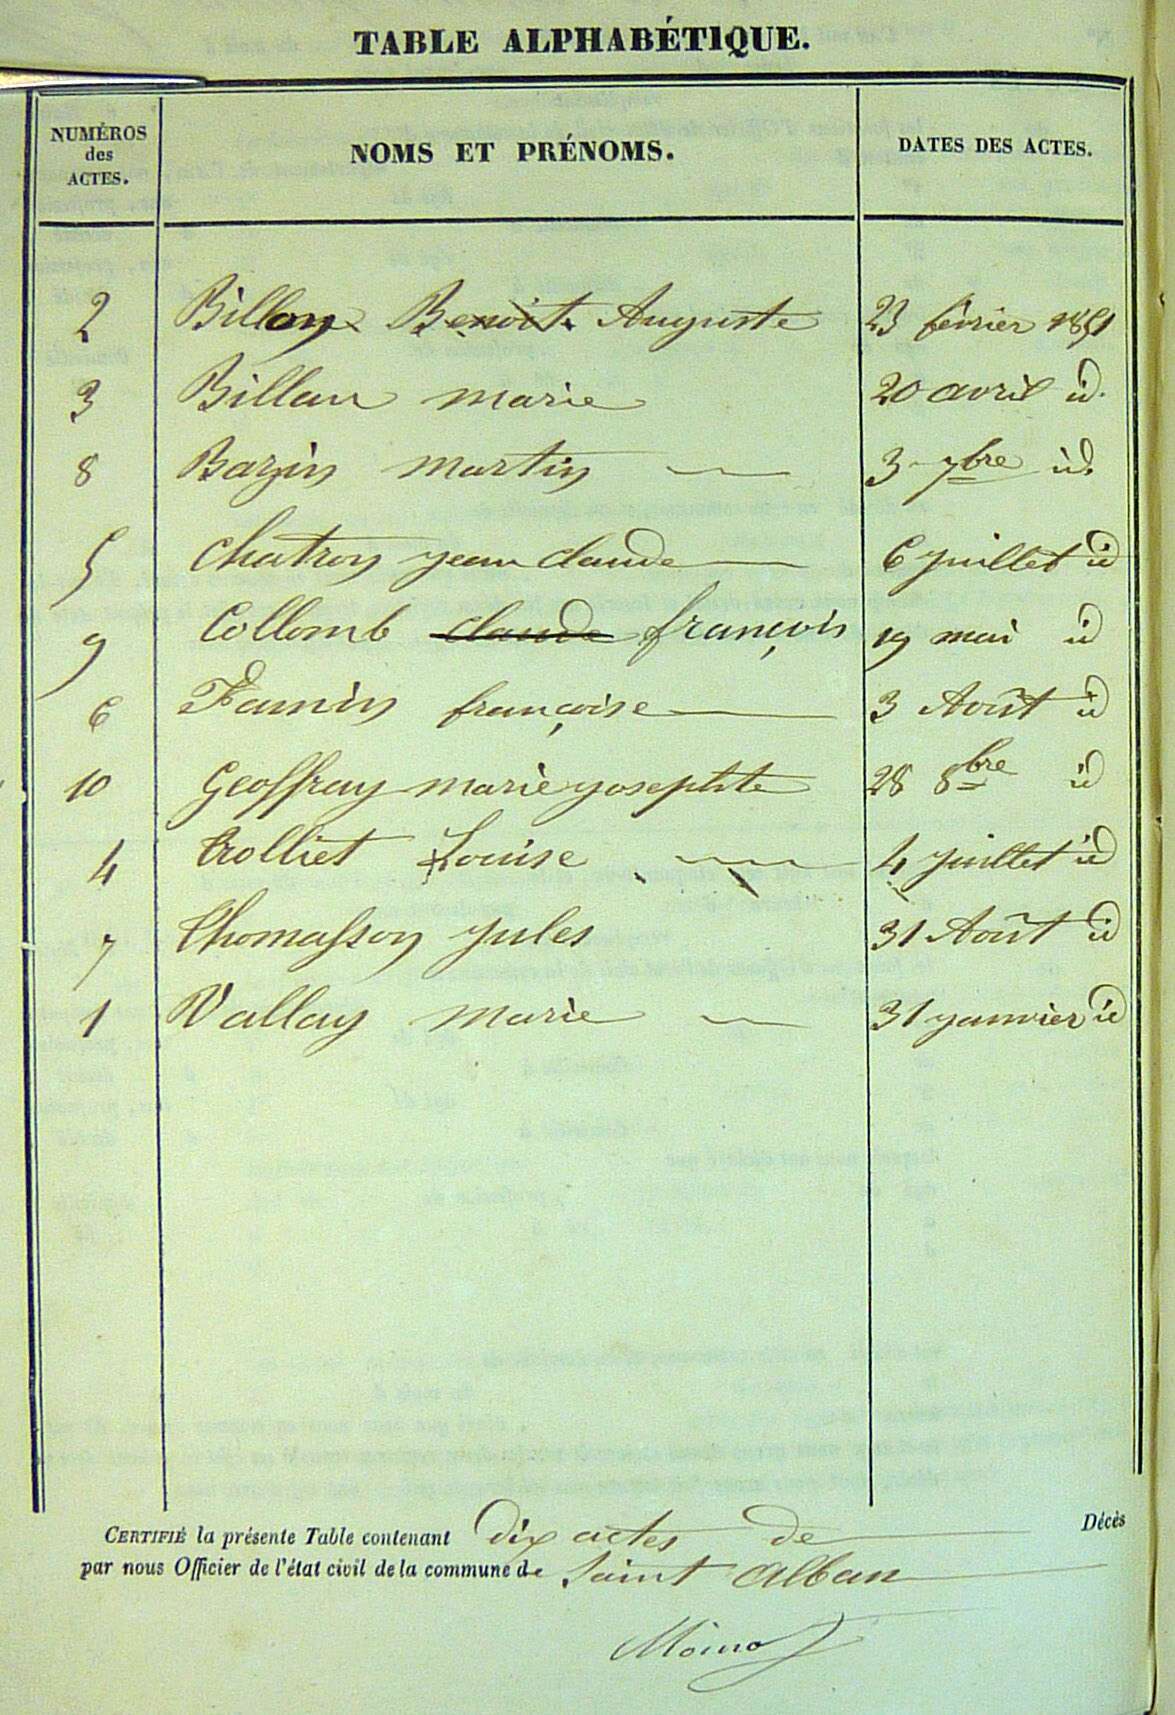 TABLE ALPHABÉTIQUE.
NUMÉROS des ACTES. NOMS ET PRÉNOMS. DATES DES ACTES.
2 Billon Benoit Auguste 23 février 1851
3 Billan marie 20 avril id.
8 Bazin martin 3 7bre id.
5 chatron jean claude 6 juillet id
9 Collomb claude françois 19 mai id
6 Famin françoise 3 Août id
10 Geoffray marie josephte 28 8bre id
4 trolliet Louise 4 juillet id
7 thomasson jules 31 Août id
1 Vallay marie 31 janvier id
CERTIFIÉ la présente Table contenant dix actes de Décès
par nous Officier de l'état civil de la commune de saint alban